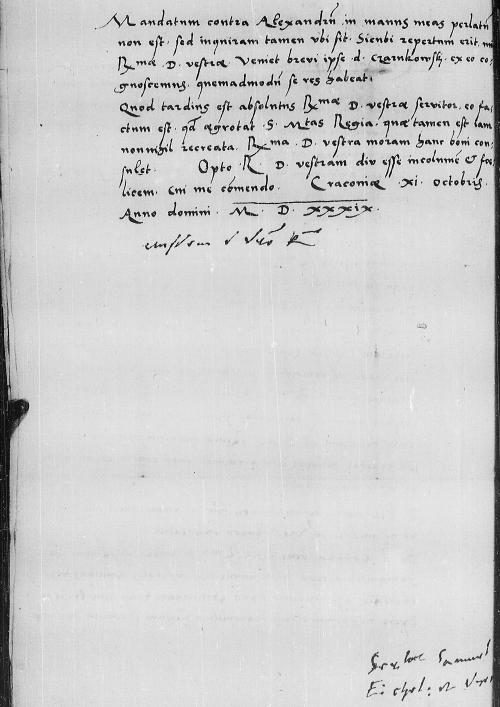 Mandatum contra Alexandrũ in manus meas perlatũ
non est. sed inquiram tamen vbi sit. Sicubi repertum erit,
Rmae . D . vestrae . Veniet brevi ipse . d . Czarnkowsk. ex eo co-
gnoscemus . quemadmodũ se res habeat.
Quod tardius est absolutus Rmae D . vestrae servitor, eo fa-
ctum est . qd aegrotat . S . Mtas Regia . quae tamen est iam
nonnihil recreata . Rma . D . vestra moram hanc boni con-
sulet. Opto R. D . vestram div esse incolumẽ & foe-
licem. Cui me cõmendo. Cracouiae . XI . Octobris.
Anno domini . M . D . XXXIX .